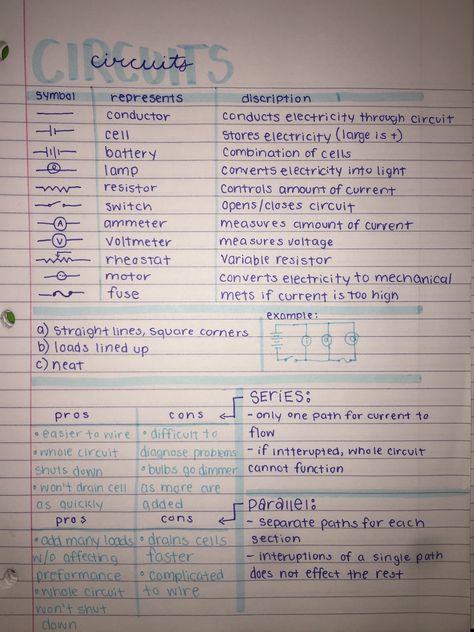 CIRCUITS
circuits
symbol represents discription
conductor conducts electricity through circuit
cell stores electricity (large is +)
battery combination of cells
lamp converts electricity into light
resistor controls amount of current
switch opens/closes circuit
A ammeter measures amount of current
V voltmeter measures voltage
rheostat variable resistor
motor converts electricity to mechanical
fuse mets if current is too high
a) straight lines, square corners
b) loads lined up
c) neat
example:
pros cons
• easier to wire
• whole circuit
shuts down
• won't drain cell
as quickly
• difficult to
diagnose problems
• bulbs go dimmer
as more are
added
SERIES:
- only one path for current to
flow
- if intterupted, whole circuit
cannot function
pros cons
• add many loads
w/o affecting
preformance
• whole circuit
won't shut
down
• drains cells
faster
• complicated
to wire
parallel:
- separate paths for each
section
- interuptions of a single path
does not effect the rest